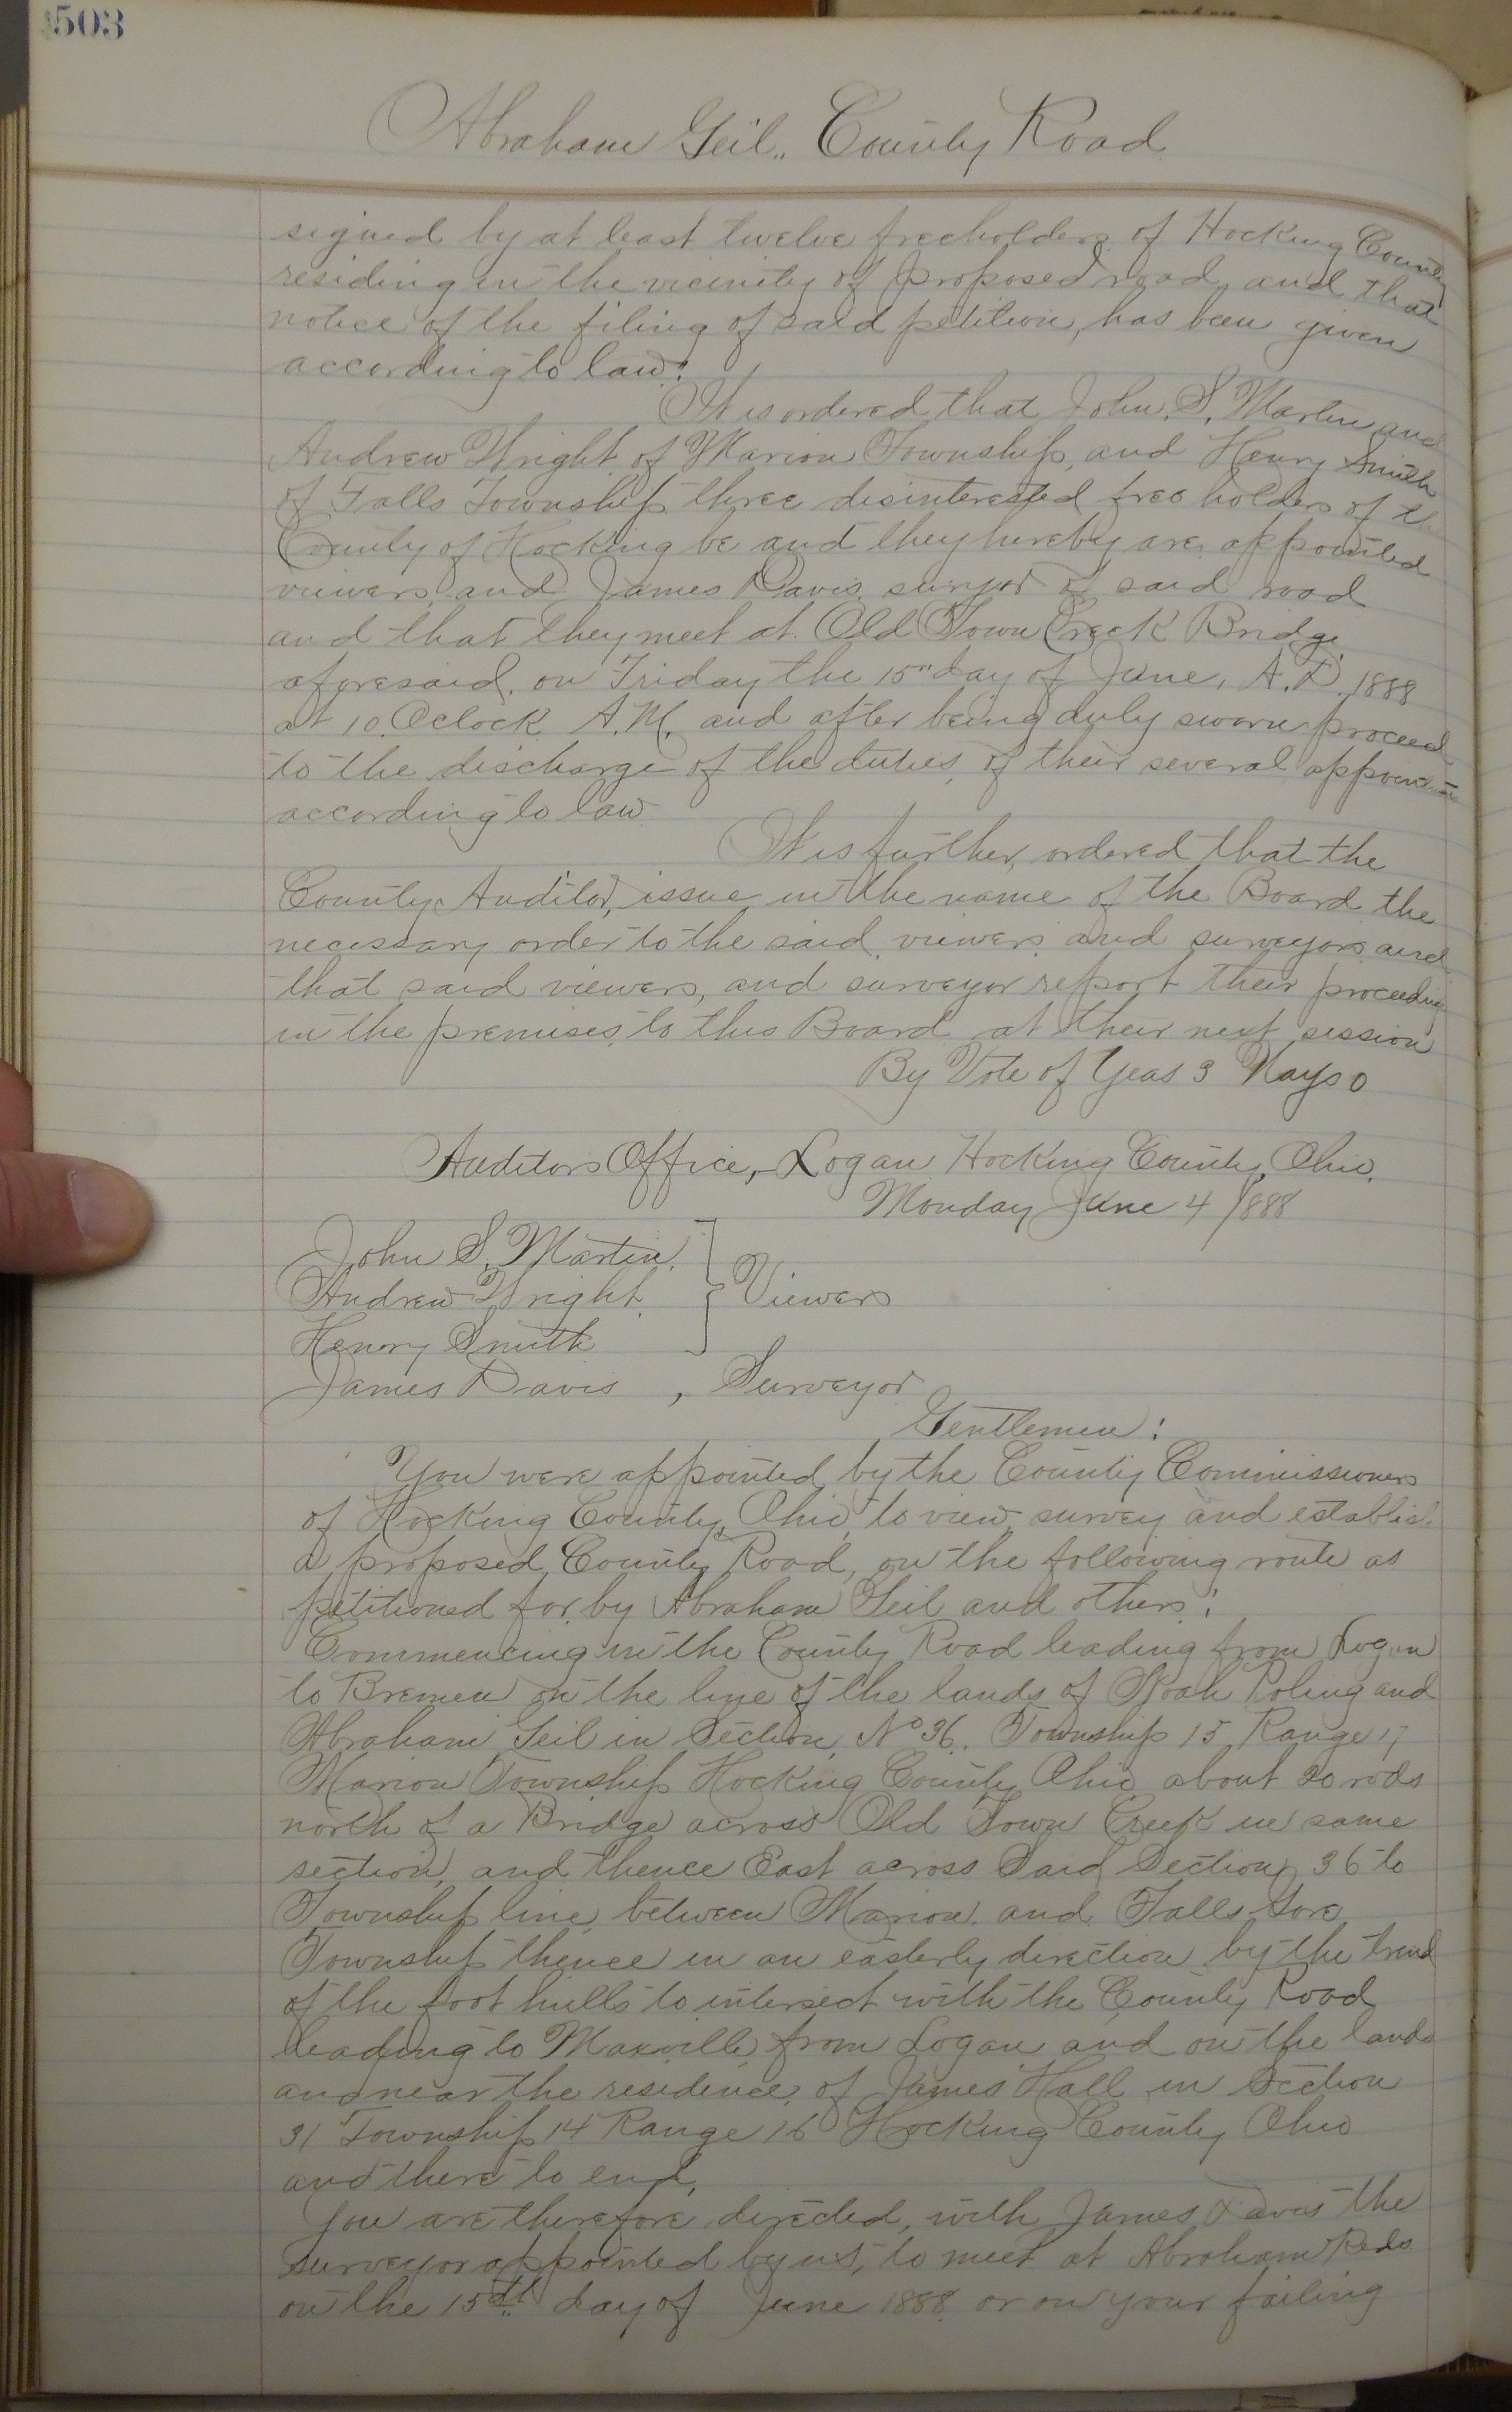 503
Abraham Geil,, County Road
signed by at least twelve freeholders of Hocking County
residing in the vicinity of proposed road, and that
notice of the filing of said petition, has been given
according to law:
It is ordered that John. S. Martin and
Andrew Wright of Marion Township, and Henry Smith
of Falls Township three disinterested free holders of th
County of Hocking be and they hereby are appointed
viewers and James Davis, of said road
and that they meet at Old Town Creek Bridge
aforesaid, on Friday the 15" day of June, A.D. 1888
at 10 Oclock A.M. and after being duly sworn proceed
to the discharge of the duties, of their several
according to law
It is further, ordered that the
County Auditor, issue in the name of the Board the
necessary order to the said viewers and surveyors and
that said viewers, and surveyor report their
in the premises, to this Board at their next session
By Vote of Yeas 3 Nays 0
Auditors Office, Logan Hocking County, Ohio.
Monday June 4/888
John S. Martin.
Andrew Wright } Viewers
Henry Smith
James Davis , Surveyor
Gentlemen:
You were appointed by the County Commissioners
of Hocking County, Ohio, to view, survey and establish
a proposed County Road, on the following route as
petitioned for by Abraham Geil and others:
Commencing in the County Road leading from Logan
to Bremen on the line of the lands of Noah Poling and
Abraham Geil in Section No 36. Township 15 Range 17
Marion Township Hocking County Ohio about 20 rods
north of a Bridge across Old Town Creek in same
section, and thence East across Said Section 36 to
Township line between Marion and Falls Gore
Township thence in an easterly direction by the trend
of the foot hills to intersect with the County Road
leading to Maxville from Logan and on the lands
and near the residence of James Hall in Section
31 Township 14 Range 16 Hocking County Ohio
and there to end.
You are therefore directed, with James Davis the
surveyor appointed by us, to meet at Abraham
on the 15th day of June 1888 or on your failing